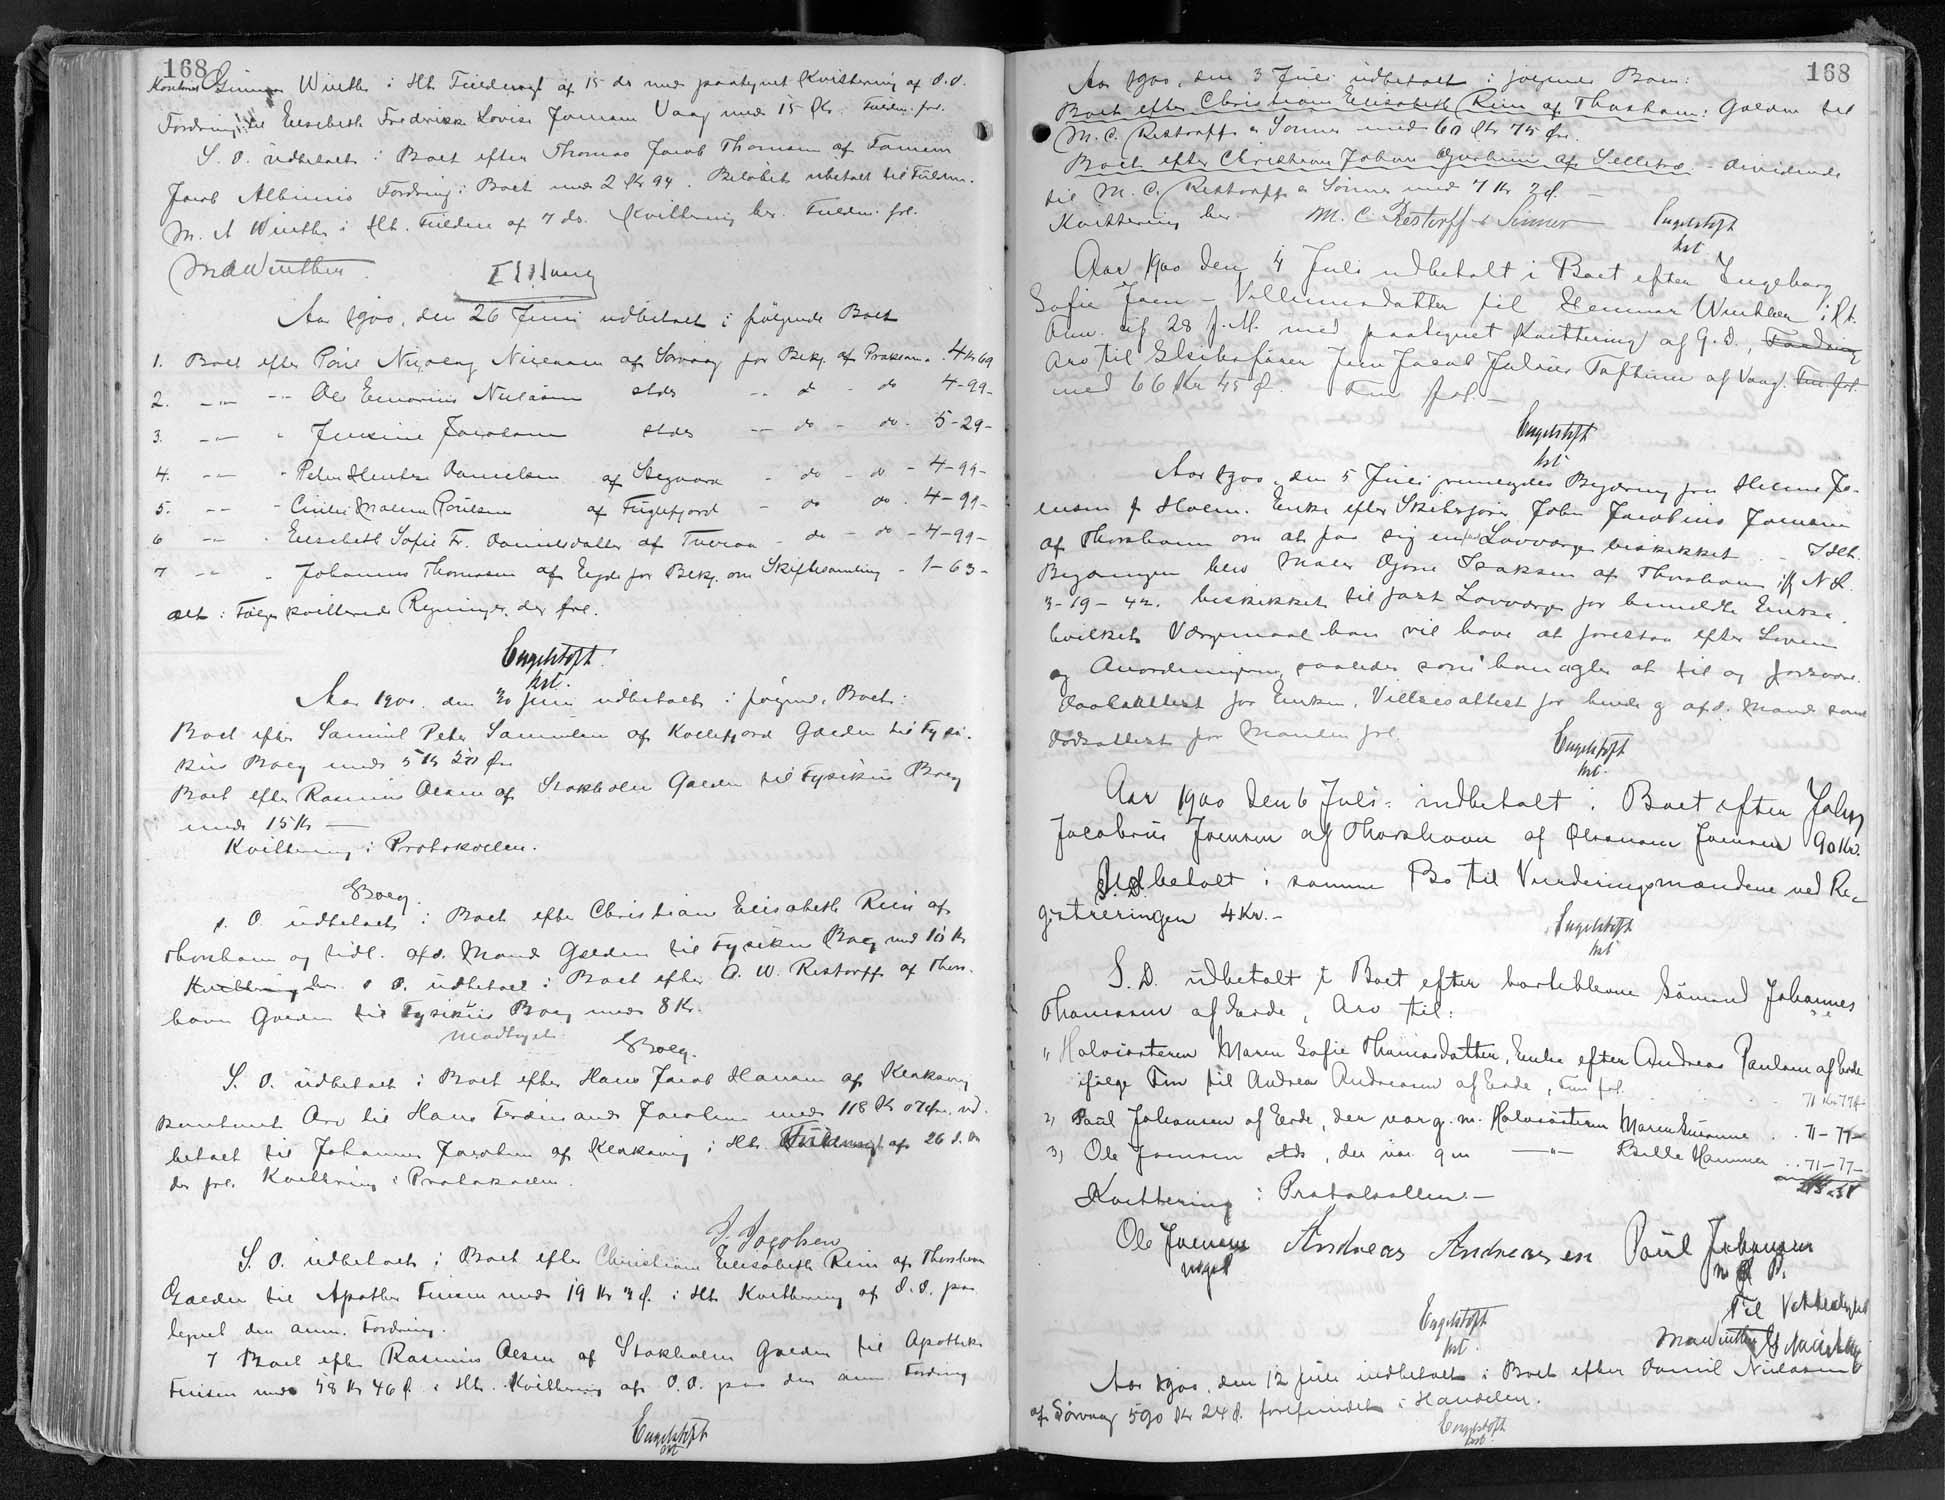 168
Gunnar Winther i Hh. Fuldmagt af 15 ds med paategnet Kvittering af d. d.
Fordring til Elisabeth Fredrikke Lovise Joensen Vaag med 15 Kr. Fuldm. frl.
S. D. udbetalt i Boet efter Thomas Jacob Thomsen af Famien
Jacob Albinus Fordring i Boet med 2 Kr 94. Beløbet udbetalt til Fuldm.
M. A Winther i Hh. Fuldm af 7 ds. Kvittering her. Fuldm. frl.
MAWinther
Aar 1900, den 26 Juni udbetalt i følgende Boer
1. Boet efter Poul Nicolaj Nielsen af Sørvaag for Bekj. af Proklama. 4 Kr 69
2. -"- -"- Ole Emorius Nielsen stds -"- d - do 4-99-
3. -"- " Jensine Jacobsen stds -"- do - do - 5-29-
4. -"- " Peter Hentze Danielsen af Stegaard - do - do - 4-99-
5. -"- " Cicilie Malene Poulsen af Fuglefjord - do do - 4-99-
6 -"- " Elisabeth Sofie Fr. Danielsdatter af Tveraa - do - do - 4-99-
7 -"- " Johannes Thomsen af Ejde for Bekj. om Skiftesamling - 1-63-
alt i Følge kvitterede Regninger, der frl.
Engelstoft
kst.
Aar 1900. den 30 Juni udbetalt i følgende Boer:
Boet efter Samuel Peter Samuelsen af Kollefjord Gælden til Fysi-
kus Boeg med 5 Kr 50 Øre
Boet efter Rasmus Olsen af Stakholm Gælden til Fysikus Boeg
med 15 Kr —
Kvittering i Protokollen.
Boeg.
s. D. udbetalt i Boet efter Christiane Elisabeth Rein af
Thorshavn og tidl. afd. Mand Gælden til Fysikus Boeg med 10 Kr
Kvittering her. s D. udbetalt i Boet efter A. W. Restorff af Thors-
havn Gælden til Fysikus Boeg med 8 Kr.
Modtaget
Boeg.
S. D. udbetalt i Boet efter Hans Jacob Hansen af Klaksvig
kontant Arv til Hans Ferdinand Jacobsen med 118 Kr 07 Øre, ud-
betalt til Johannes Jacobsen af Klaksvig i Hh. Fuldmagt af 26 d. M
der frl. Kvittering i Protokollen.
J. Jacobsen
S. D. udbetalt i Boet efter Christiane Elisabeth Rein af Thorshavn
Gælden til Apotheker Finsen med 19 Kr 3 Ø. i Hh. Kvittering af d. d. paa-
tegnet den anm. Fordring.
I Boet efter Rasmus Olsen af Stakholm Gælden til Apotheker
Finsen med 58 Kr 46 Ø i Hh. Kvittering af D. D. paa den anm. Fordring
Engelstoft
kst
168
Aar 1900, den 3 Juli udbetalt i følgende Boer:
Boet efter Christiane Elisabeth Rein af Thorshavn: Gælden til
M. C. Restorff & Sønner med 60 Kr 75 Øre.
Boet efter Christian Johan af Selletræ - dividende
til M. C. Restorff & Sønner med 7 Kr 3 Ø. —
Kvittering her. M. C. Restorff & Sønner
Engelstoft
kst
Aar 1900 den 4 Juli udbetalt i Boet efter Ingeborg
Sofie Joen - Villumsdatter til Gunnar Winther i Hh.
Anm. af 28 f. M. med paategnet Kvittering af G. D., Fordring
Arv til Skibsfører Jens Jacob Julius Toftum af Vaag. Fm frl.
med 66 Kr 45 Ø. Fm frl. —
Engelstoft
kst
Aar 1900, den 5 Juli, fremlagdes Begæring fra Helene Jo-
ensen f. Holm. Enke efter Skibsfører John Jacobius Joensen
af Thorshavn om at faa sig en fast Lavværge beskikket. - I Hh.
Begæringen blev Maler Isaksen af Thorshavn jfr N. L.
3-19-42. beskikket til fast Lavværge for bemeldte Enke.
hvilket Værgemaal han vil have at forestaa efter Loven
og Anordningerne, saaledes som han agter at til og forsvare.
Daabsattest for Enken, Vielsesattest for hende og afd. Mand samt
Dødsattest for Manden frl.
Engelstoft
kst.
Aar 1900 den 6 Juli indbetalt i Boet efter John
Jacobius Joensen af Thorshavn af Joensen 90 Kr.
S. D. Udbetalt i samme Bo til Vurderingsmændene ved Re-
gistreringen 4 Kr. -
Engelstoft
kst
S. D. udbetalt i Boet efter bortblevne Sømand Johannes
Thomsen af Eide, Arv til:
1, Halvsøsteren Maren Sofie Thomasdatter, Enke efter Andreas Paulsen af Eide
ifølge Fm til Andreas Andreasen af Eide, Fm frl. . . . . 71 Kr 77 Ø
2, Paul Johansen af Eide, der var g. m. Halvsøsteren Maren Susanne . . 71-77-
3) Ole Joensen stds, der var g m -"- Sille Hamma . . 71-77-
Kvittering i Protokollen. —
Ole Joensen Andreas Andreasen Paul Johansen
m P.
Til Vitterlighed
MAWinther
Engelstoft
kst.
Aar 1900, den 12 Juli indbetalt i Boet efter Daniel Nielsen
af Sørvaag 590 Kr 24 Ø. forefundet i Handelen.
Engelstoft
kst.